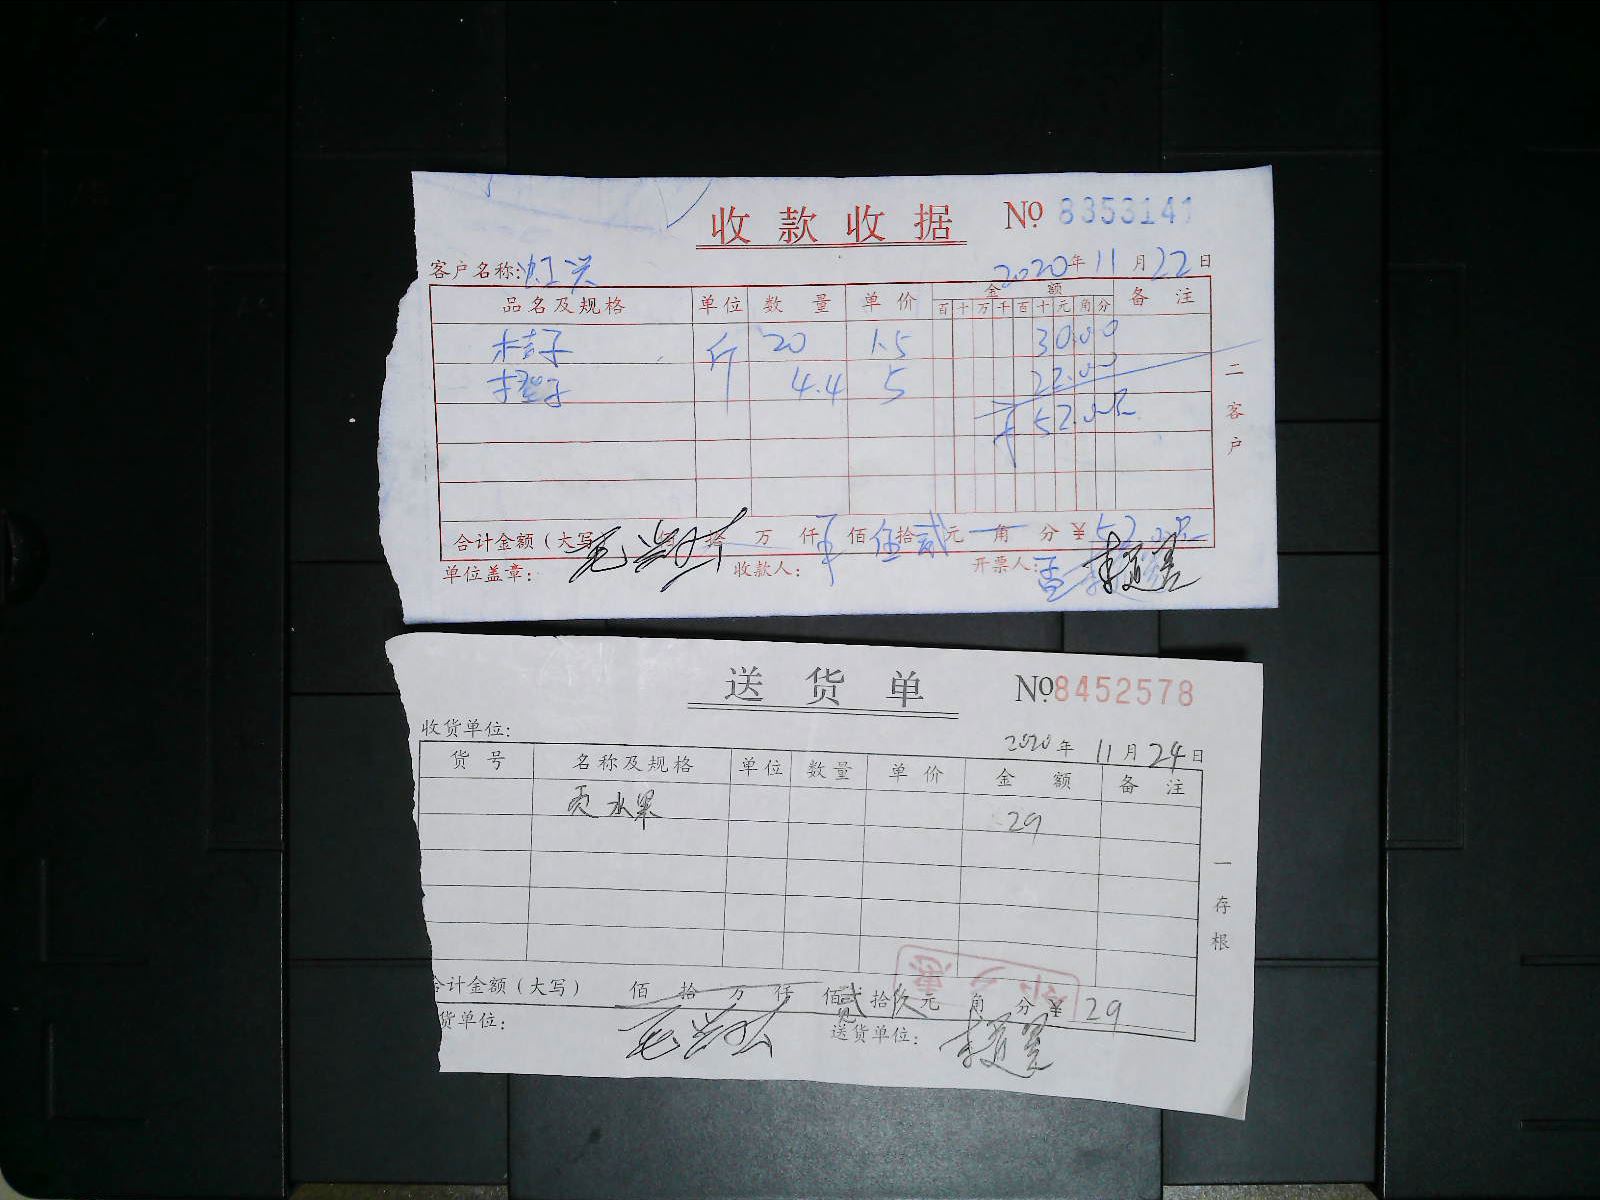 收款收据 No 8353141
客户名称: 虹兴 2020年11月22日
品名及规格 单位 数量 单价 金额 备注
百 十 万 千 百 十 元 角 分
桔子 斤 20 1.5 30.00
橙子 斤 4.4 5 22.00
¥52.00
二 客户
合计金额(大写) 拾 万 仟 佰 伍拾贰元 角 分 ¥52.00
单位盖章: 收款人: 开票人:
送货单 No 8452578
收货单位: 2020年11月24日
货号 名称及规格 单位 数量 单价 金额 备注
买水果 29
一 存根
合计金额(大写) 佰 拾 万 仟 佰贰拾玖元 角 分 ¥29
货单位: 送货单位: